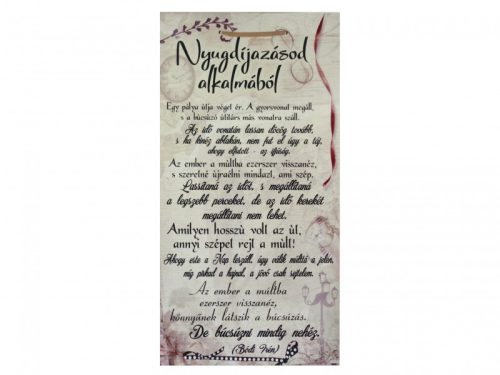 Nyugdíjazásod
alkalmából
Egy pálya útja véget ér. A gyorsvonat megáll,
s a búcsúzó útitárs más vonatra száll.
Az idő vonatán lassan döcög tovább,
s ha kinéz ablakán, nem fut el úgy a táj,
ahogy elfutott - az ifjúság.
Az ember a múltba ezerszer visszanéz,
s szeretné újraélni mindazt, ami szép.
Lassítaná az időt, s megállítaná
a legszebb perceket, de az idő kerekét
megállítani nem lehet.
Amilyen hosszù volt az ùt,
annyi szépet rejt a mùlt!
Ahogy este a Nap leszáll, úgy válik múlttá a jelen,
míg pirkad a hajnal, a jövő csak sejtelem.
Az ember a múltba
ezerszer visszanéz,
könnyűnek látszik a búcsúzás.
De búcsúzni mindig nehéz.
(Bódi Irén)